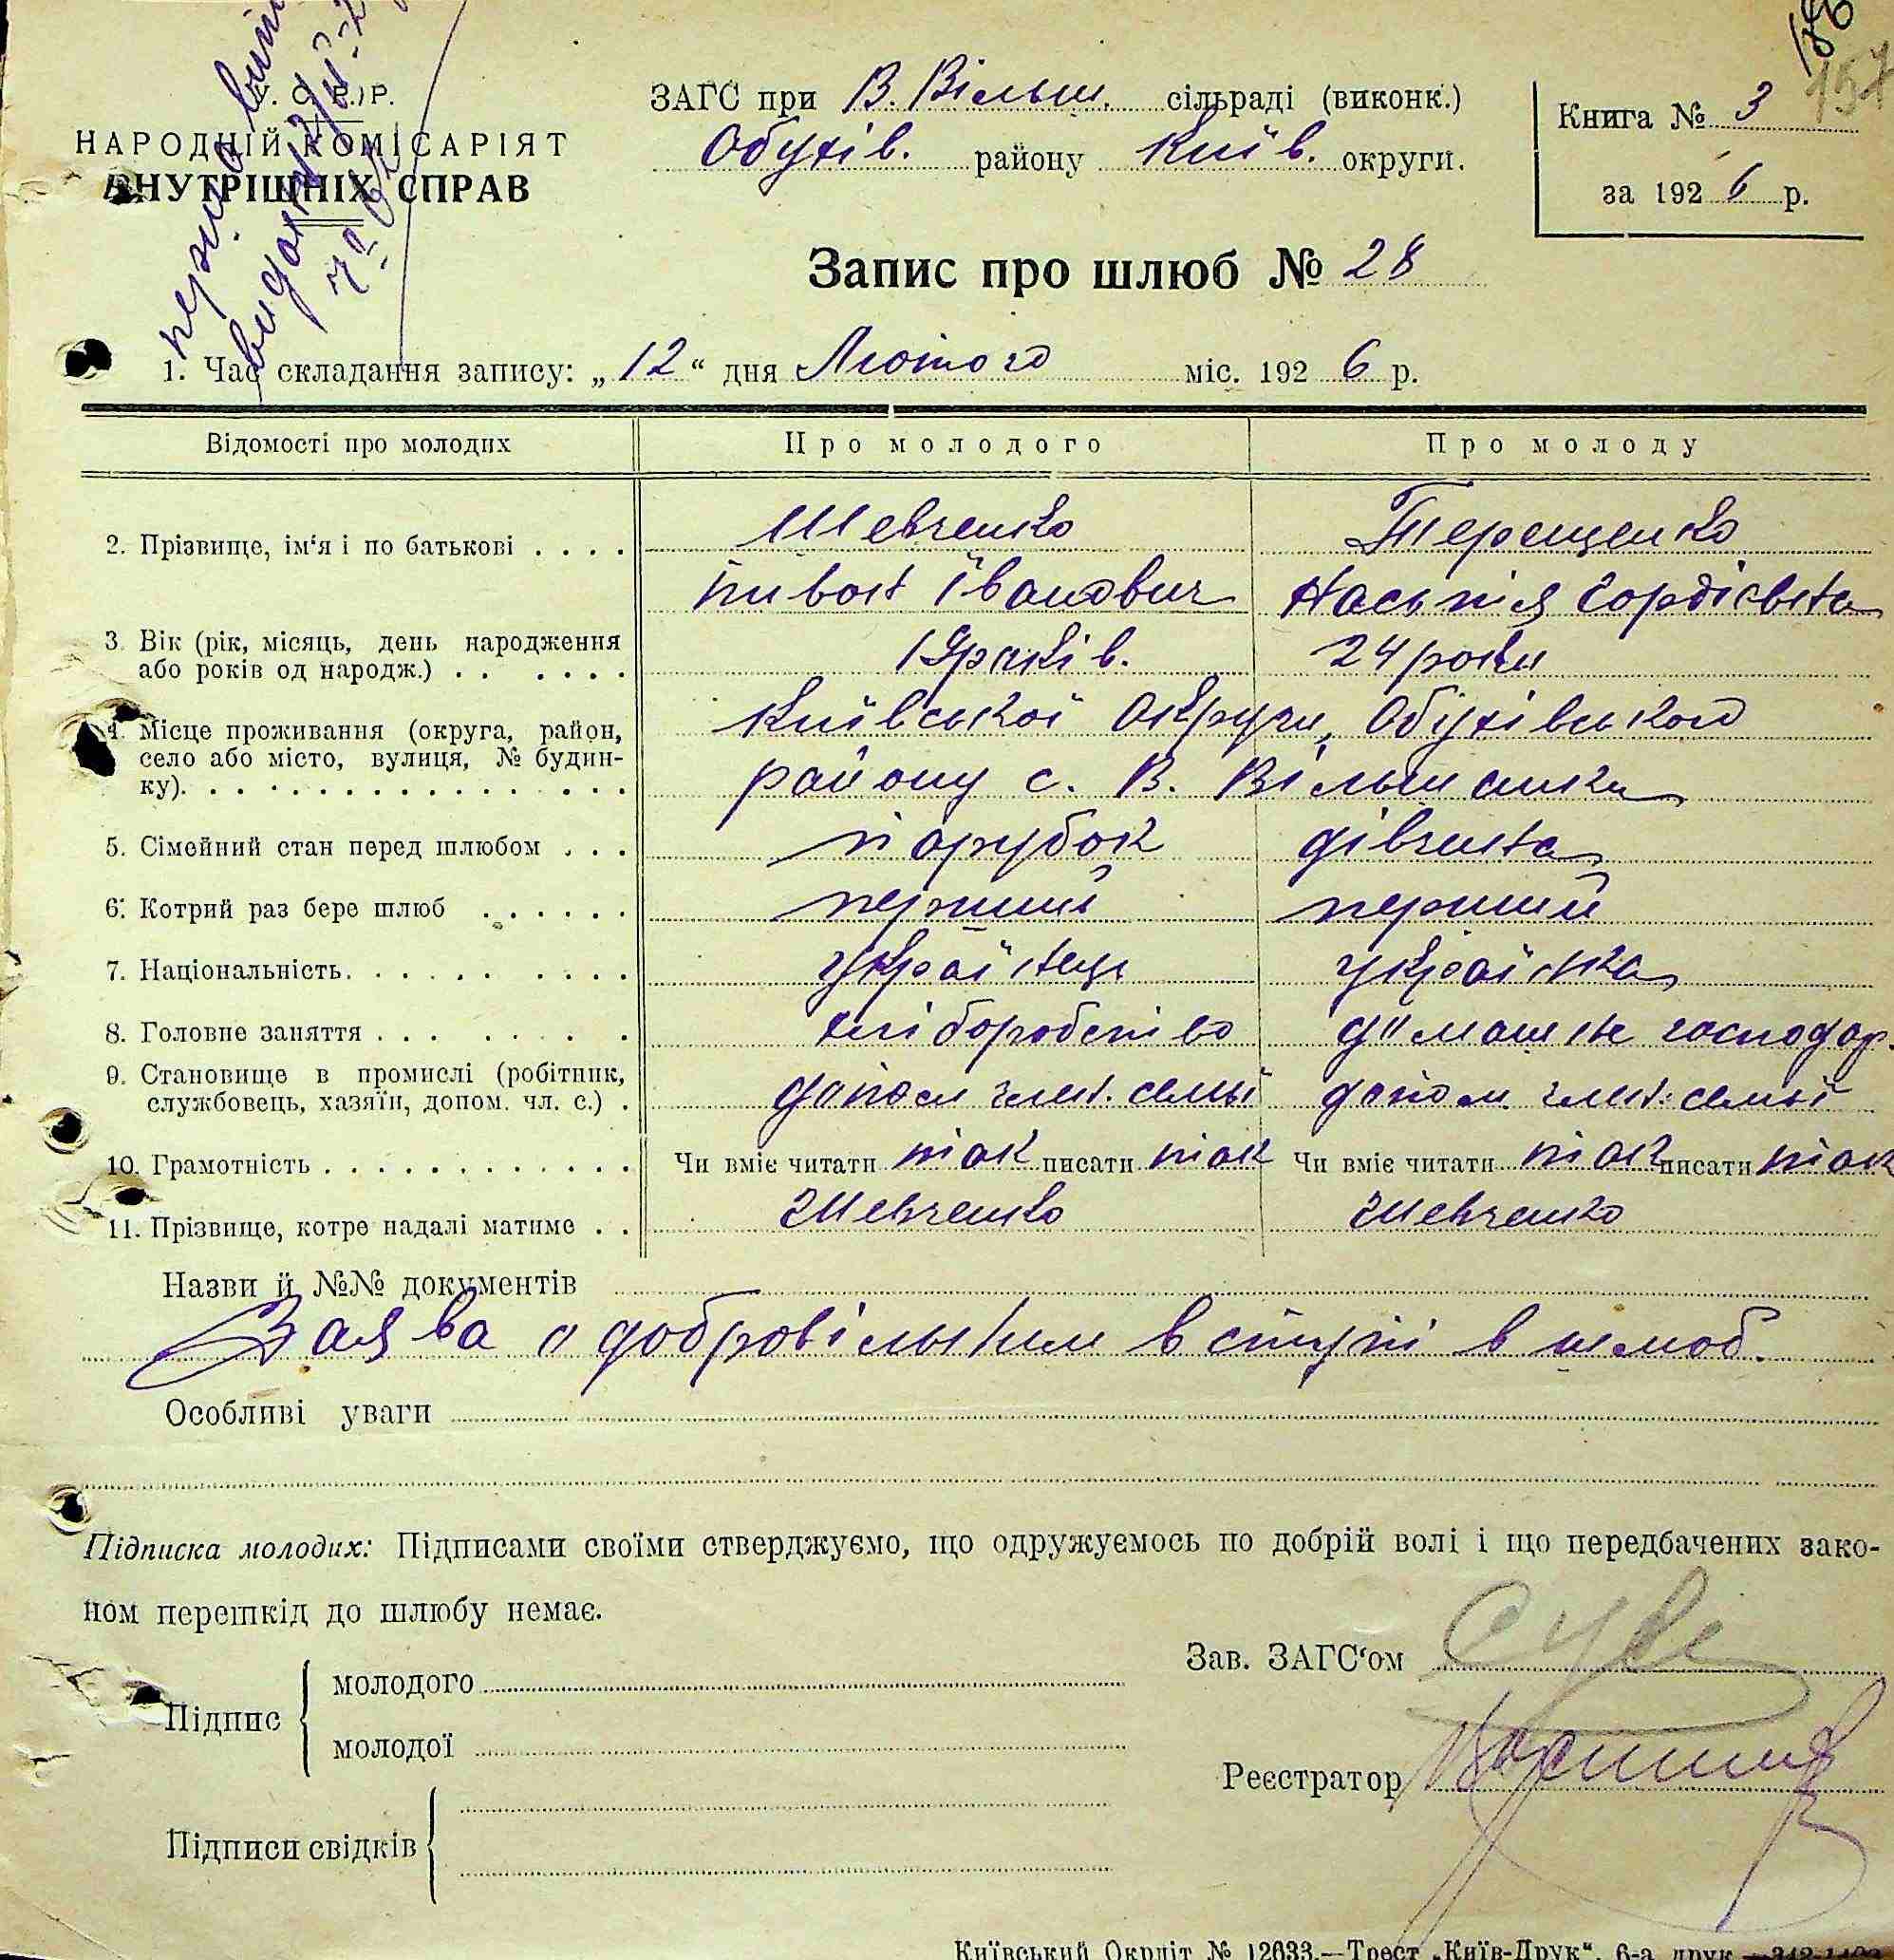 156
157
У. С. Р. Р.
НАРОДНІЙ КОМІСАРІЯТ
ВНУТРІШНІХ СПРАВ
ЗАГС при В. Вільш. сільраді (виконк.)
Обухів. району Київ. округи.
Книга № 3
за 1926 р.
Запис про шлюб № 28
1. Час складання запису: „12“ дня Лютого міс. 1926 р.
Відомості про молодих Про молодого Про молоду
2. Прізвище, ім‘я і по батькові . . . . Шевченко Терещенко
Іванович Настя Гордієвна
3. Вік (рік, місяць, день народження
або років од народж.) . . . . . . 19 років. 24 роки
4. Місце проживання (округа, район, Київської Округи, Обухівського
село або місто, вулиця, № будин-
ку). . . . . . . . . . . . . . . району с. В. Вільшанки
5. Сімейний стан перед шлюбом . . . парубок дівчина
6. Котрий раз бере шлюб . . . . . . перший перший
7. Національність. . . . . . . . . українець українка
8. Головне заняття . . . . . . . . хліборобство домашнє господар.
9. Становище в промислі (робітник,
службовець, хазяїн, допом. чл. с.) . допом член. семьї допом. член. семьї
10. Грамотність . . . . . . . . . . . . Чи вміє читати так писати так Чи вміє читати так писати так
11. Прізвище, котре надалі матиме . . Шевченко Шевченко
Назви й №№ документів
Заява о добровільним вступі в шлюб.
Особливі уваги
Підписка молодих: Підписами своїми стверджуємо, що одружуємось по добрій волі і що передбачених зако-
ном перешкід до шлюбу немає.
Зав. ЗАГС‘ом
Підпис
молодого
молодої
Реєстратор
Підписи свідків
Київський Окрліт № 12633.—Трест „Київ-Друк“, 6-а друк.